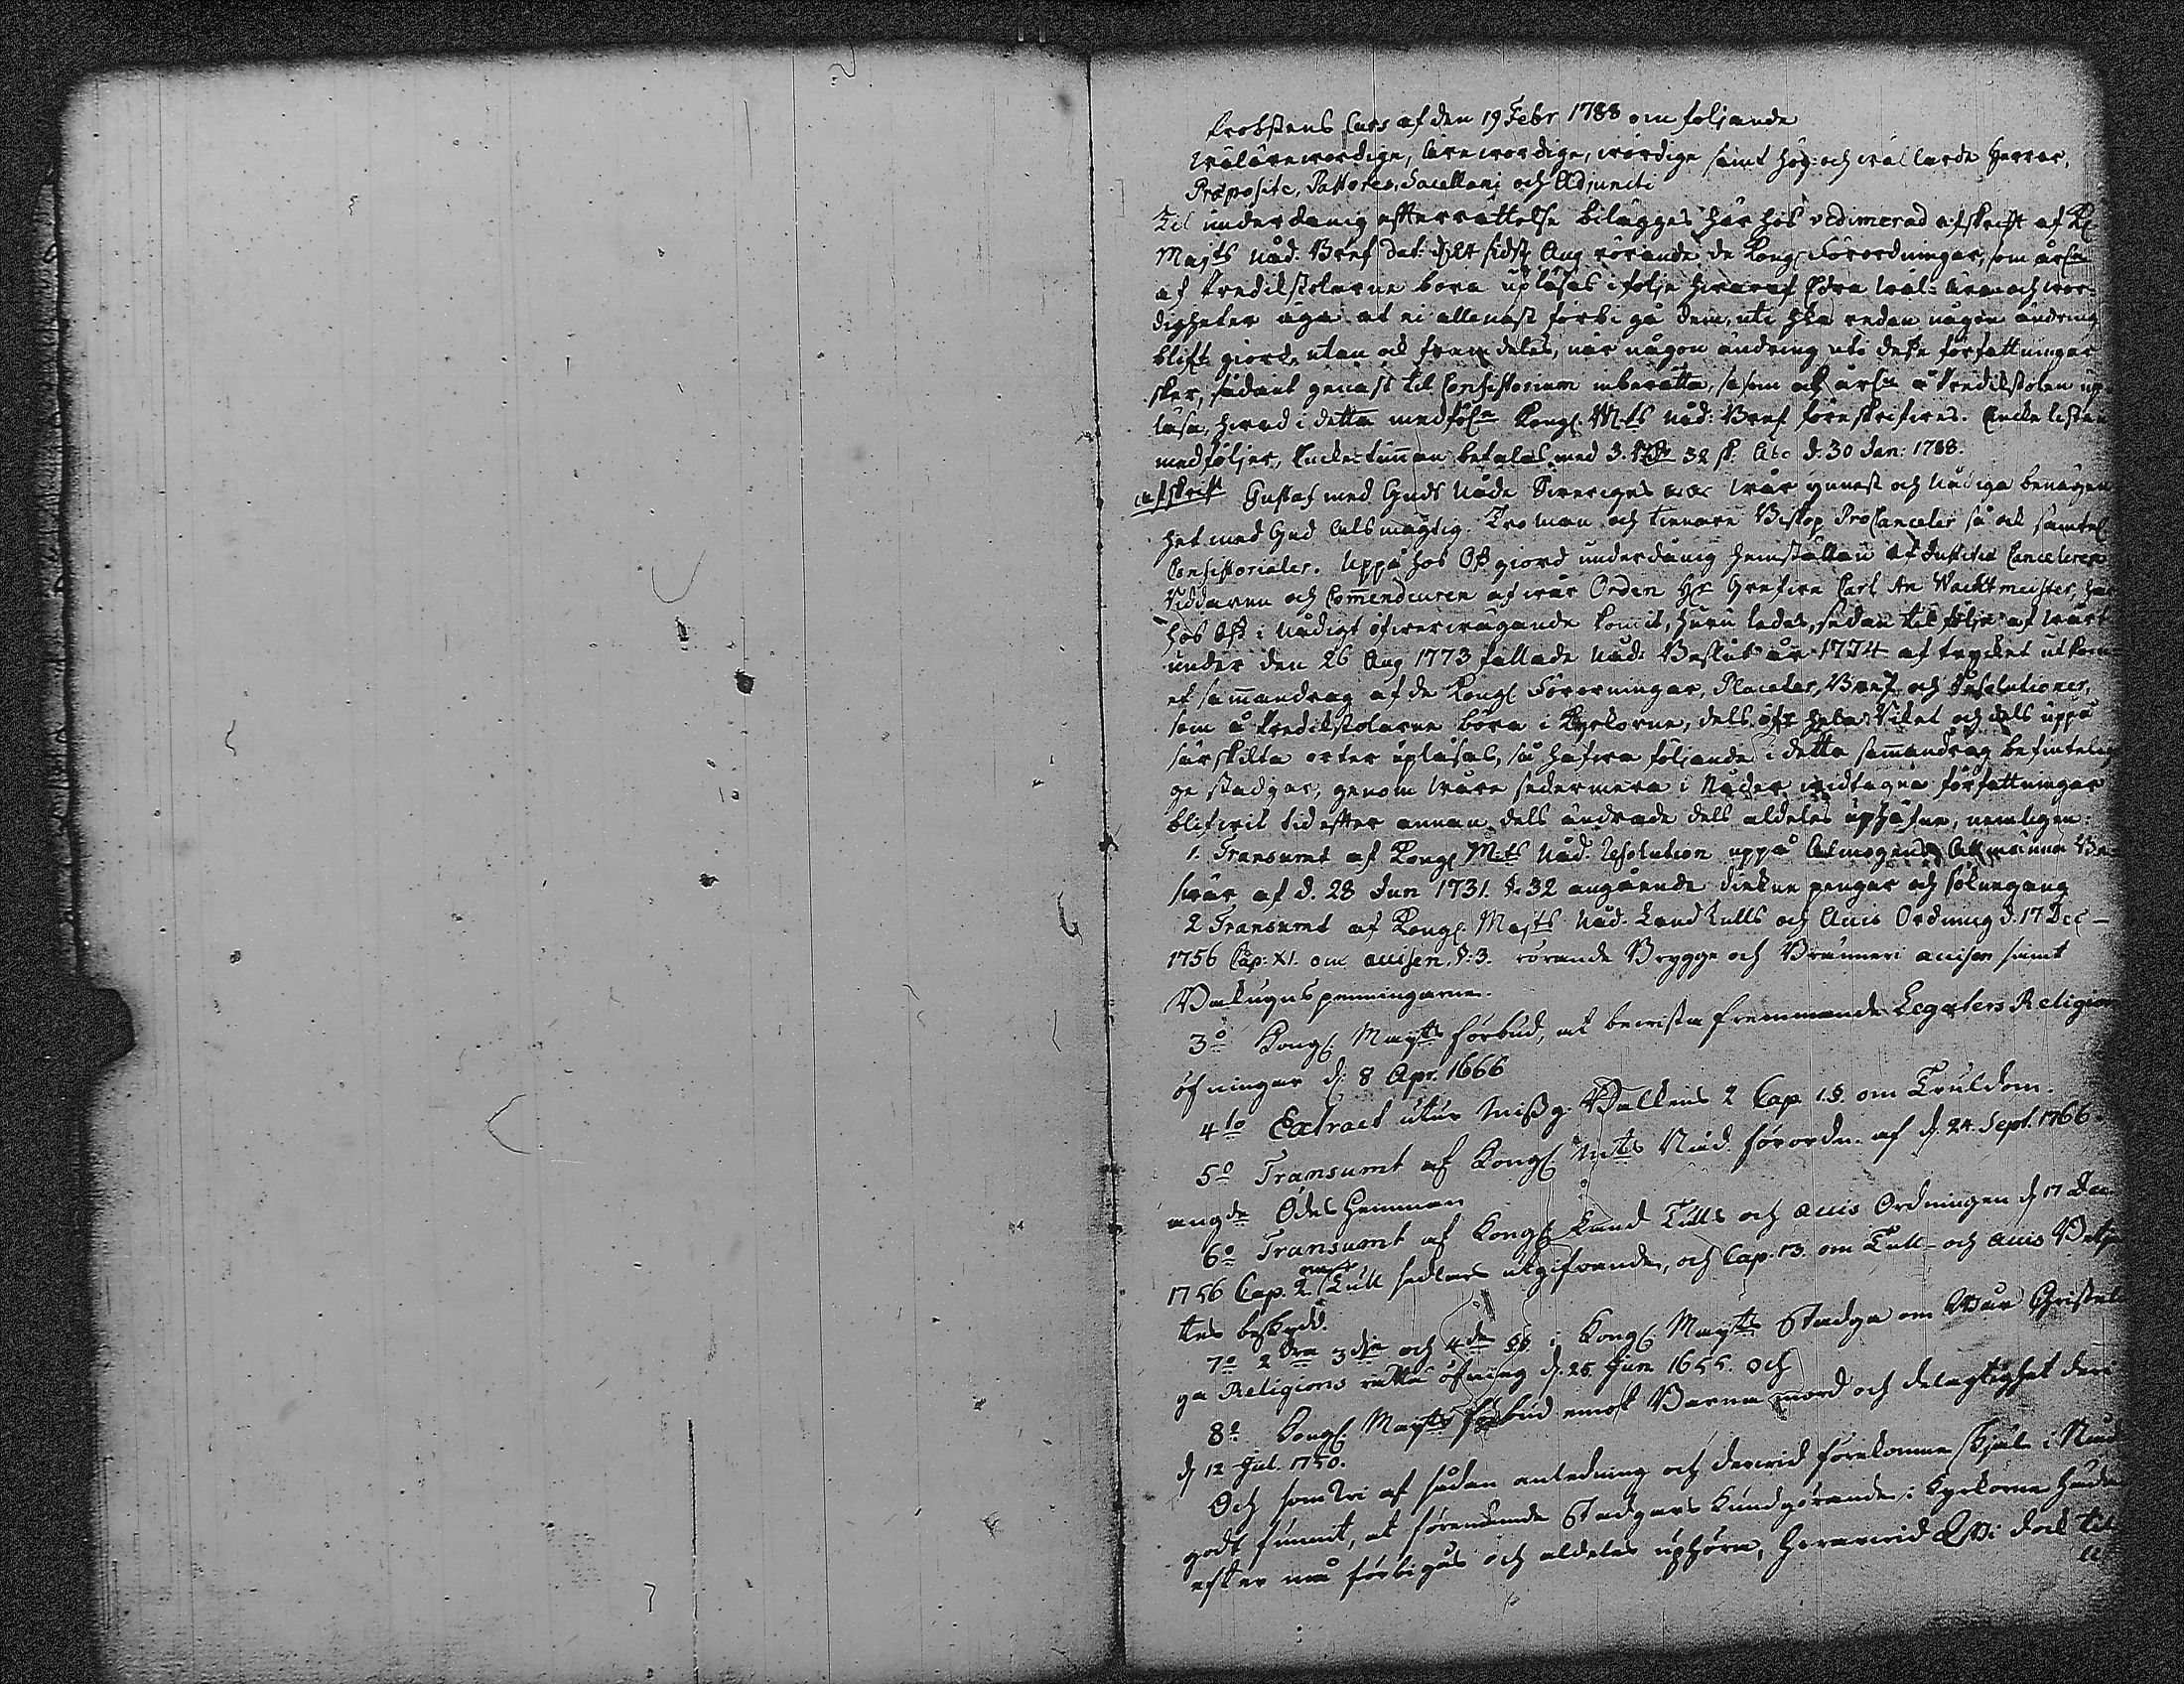 Probstens Curs af den 19 Febr 1788 om följande
Wälärewördige, Ärewördige, wördige samt Hög: och wällärde Herrar,
Præposite, Pastores, Sacellani och Adjuncti
Til underdånig efterrättelse bilägges här hos vedimerad afskrift af K
Majts Nåd. Bref dat: sidstl. Aug rörande de Kongl Förordningar, som årl
af Predikstolarne böra upläsas i följe hwaraf Edra wäl: äre- och wör-
digheter äga at ei allenast förbi gå dem, uti hka redan någon ändring
blifit giord, utan ock framdeles, när någon ändring uti deße författningar
sker, sådant genast til Consistorium inberätta, såsom ock årl:n å Predikstolen up
läsa, hwad i detta medföl:e Kongl. Mts Nåd: Bref föreskrifwes. Enckelisten
medföljer, Encketunnan betalas med 3. Rdr 32 sk. Abo d. 30 Jan: 1788.
Afskrift Gustaf med Guds Nåde Sweriges &c &c Wår ynnest och Nådiga benägen
het med Gud Alsmägtig. Tro man och tienare Biskop ProCanceler så ock samtel
Consistorialer. Uppå hos Oß giord underdånig hemställan af Justitiæ Cancelleren
Riddaren och Com̄endeuren af wår Orden Hr Grefwe Carl An Wachtmeister, har
hos Oß i Nådigt öfwerwägande komit, huru ledes, sedan til följe af Wårt
under den 26 Aug 1773 fallade Nåd: Beslut år 1774 af trycket utkom
et sam̄andrag af de Kongl Förorningar, Placater, Bref och Resolutioner,
som å Predikstolarne böra i Kyrkorne, dels öfr hela Riket och dels uppå
särskilta orter upläsas, så hafwa följande i detta sam̄andrag befintelig
ge stadgar, genom Wåra sedermera i Nåder widtagna författningar
blifwit tid efter annan dels ändrade dels aldeles uphäfne, nemligen:
1. Transumt af Kongl M:ts Nåd. Resolution uppå Almogens Allmänna Be-
swär af d. 28 Jun 1731. §. 32 angående diekne pengar och soknegang
2 Transumt af Kongl. Majts Nåd. Landtulls och Accis Ordning d. 17 Dec -
1756 Cap: XI. om accisen. §: 3. rörande Brygge och Bränneri accisen samt
Bakugnspenningarne.
3o Kongl. Mayts förbud, at bewista fremmande Legaters Religion
öfningar d: 8 Apr. 1666
4to Extract utur Mißg. Balkens 2 Cap. 1. §. om Truldom.
5o Transumt af Kongl Mts Nåd. förordn. af d. 24. Sept. 1766
angde Ödes Hemman
6o Transumt af Kongl Land Tulls och accis Ordningen d 17 Dec
1756 Cap. 2. om Tull sedlars utgifwande, och Cap. 13. om Tull- och accis Betjen
tes beskydd.
7o 2dra 3dje och 4de §§. i Kongl Mayts Stadga om Wår Christel
ga Religions rätta öfning d. 25 Jun 1655. och
8o Kongl. Mayts förbud emot Barna mord och delagtighet deri
d 12 Jul. 1750.
Och som Wi af sådan anledning och derwid förekomne skjäl i Nåd
godt funnit, at förenämde Stadgars kundgörande i Kyrkorne häda
efter må förbigås och aldeles uphöra, Hwarwid Wi dock til